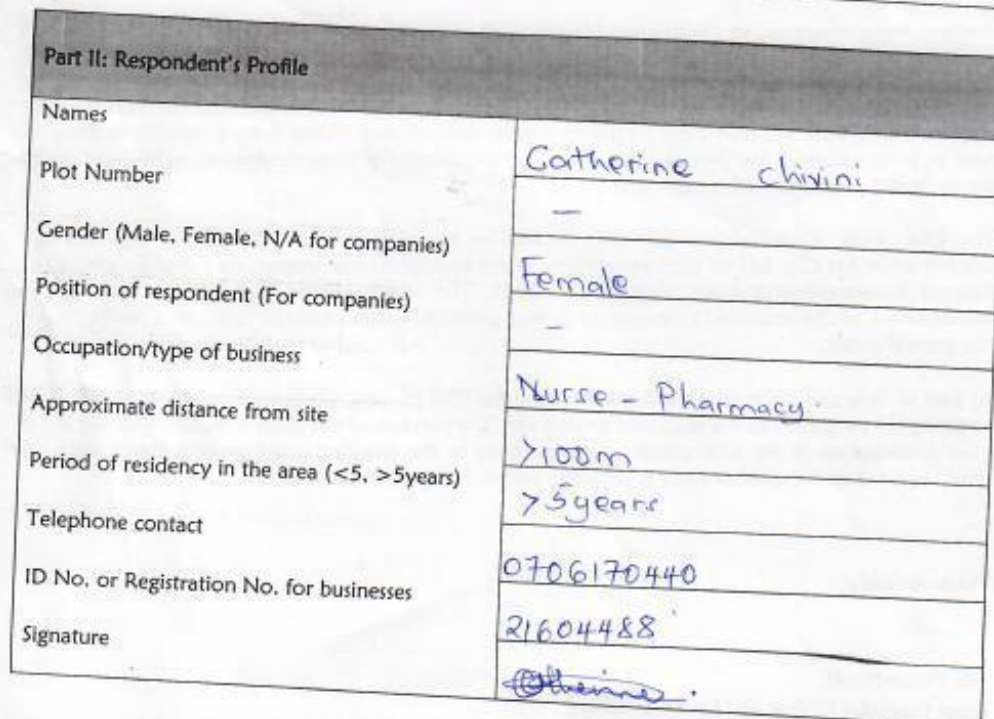 Part II: Respondent's Profile
Names
Catherine Chivini
Plot Number
—
Gender (Male, Female, N/A for companies)
Female
Position of respondent (For companies)
—
Occupation/type of business
Nurse - Pharmacy.
Approximate distance from site
>100m
Period of residency in the area (<5, >5years)
>5years
Telephone contact
0706170440
ID No. or Registration No. for businesses
21604488
Signature